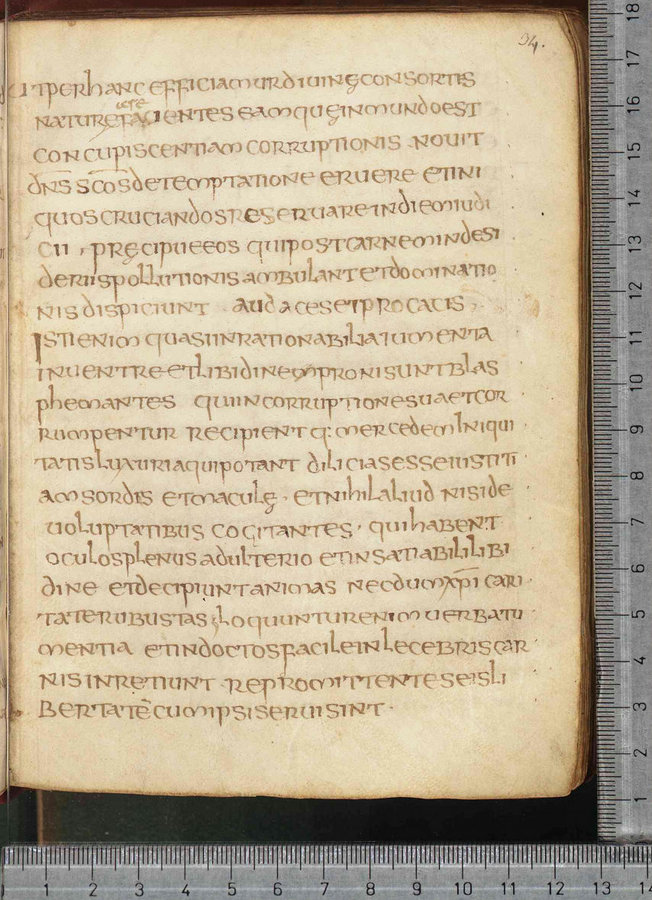 94.
UT PER hANC EFFICIAMUR DIUINĘ CONSORTIS
uere
NATURĘ FACIENTES EAM QUĘ IN MUNDO EST
CONCUPISCENTIAM CORRUPTIONIS . NOUIT
dn̄s sc̄os de TEMPTATIONE ERUERE ET INI
QUOS CRUCIANDOS RESERUARE IN DIEM IUDI
CII , PRĘCIPUE EOS QUI POST CARNEM IN DESI
DERIIS POLLUTIONIS AMBULANT ET DOMINATIO
NIS DISPICIUNT . AUDACES ET PROCACIS ,
ISTI ENIM QUASI INRATIONABILIA IUMENTA
IN UENTRE ET LIBIDINEM PRONI SUNT BLAS
PHEMANTES QUI IN CORRUPTIONE SUA ET COR
RUMPENTUR RECIPIENT q: MERCEDEM INIQUI
TATIS LUXURIA QUI POTANT DILICIAS ESSE IUSTITI
AM SORDIS ET MACULĘ . ET NIHIL ALIUD NISI DE
UOLUPTATIBUS COGITANTES . QUI HABENT
OCULOS PLENUS ADULTERIO ET INSATIABILI LIBI
DINE ET DECIPIUNT ANIMAS NECDUM xp̄i CARI
TATE RUBUSTAS LOQUUNTUR ENIM UERBA TU
MENTIA ET INDOCTOS FACILE INLECEBRIS CAR
NIS INRETIUNT . REPROMITTENTES EIS LI
BERTATĒ CUM IPSI SERUI SINT .
18
17
16
15
14
13
12
11
10
9
8
7
6
5
4
3
2
1
1 2 3 4 5 6 7 8 9 10 11 12 13 14